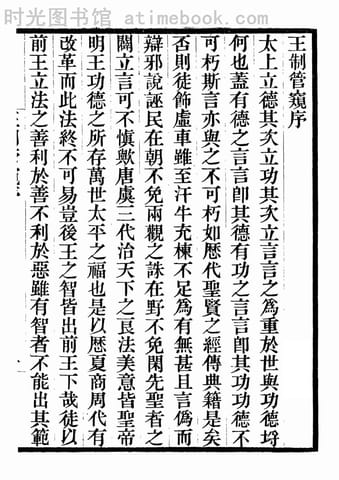 时光图书馆 - atimebook.com
王制管窺序
太上立德其次立功其次立言言之為重於世與功德埒
何也蓋有德之言言卽其德有功之言言卽其功功德不
可朽斯言亦與之不可朽如歷代聖賢之經傳典籍是矣
否則徒飾虛車雖至汗牛充棟不足為有無甚且言偽而
辯邪說誣民在朝不免兩觀之誅在野不免閑先聖者之
闢立言可不慎歟唐虞三代治天下之良法美意皆聖帝
明王功德之所存萬世太平之福也是以歷夏商周代有
改革而此法終不可易豈後王之智皆出前王下哉徒以
前王立法之善利於善不利於惡雖有智者不能出其範
时光图书馆 - atimebook.com